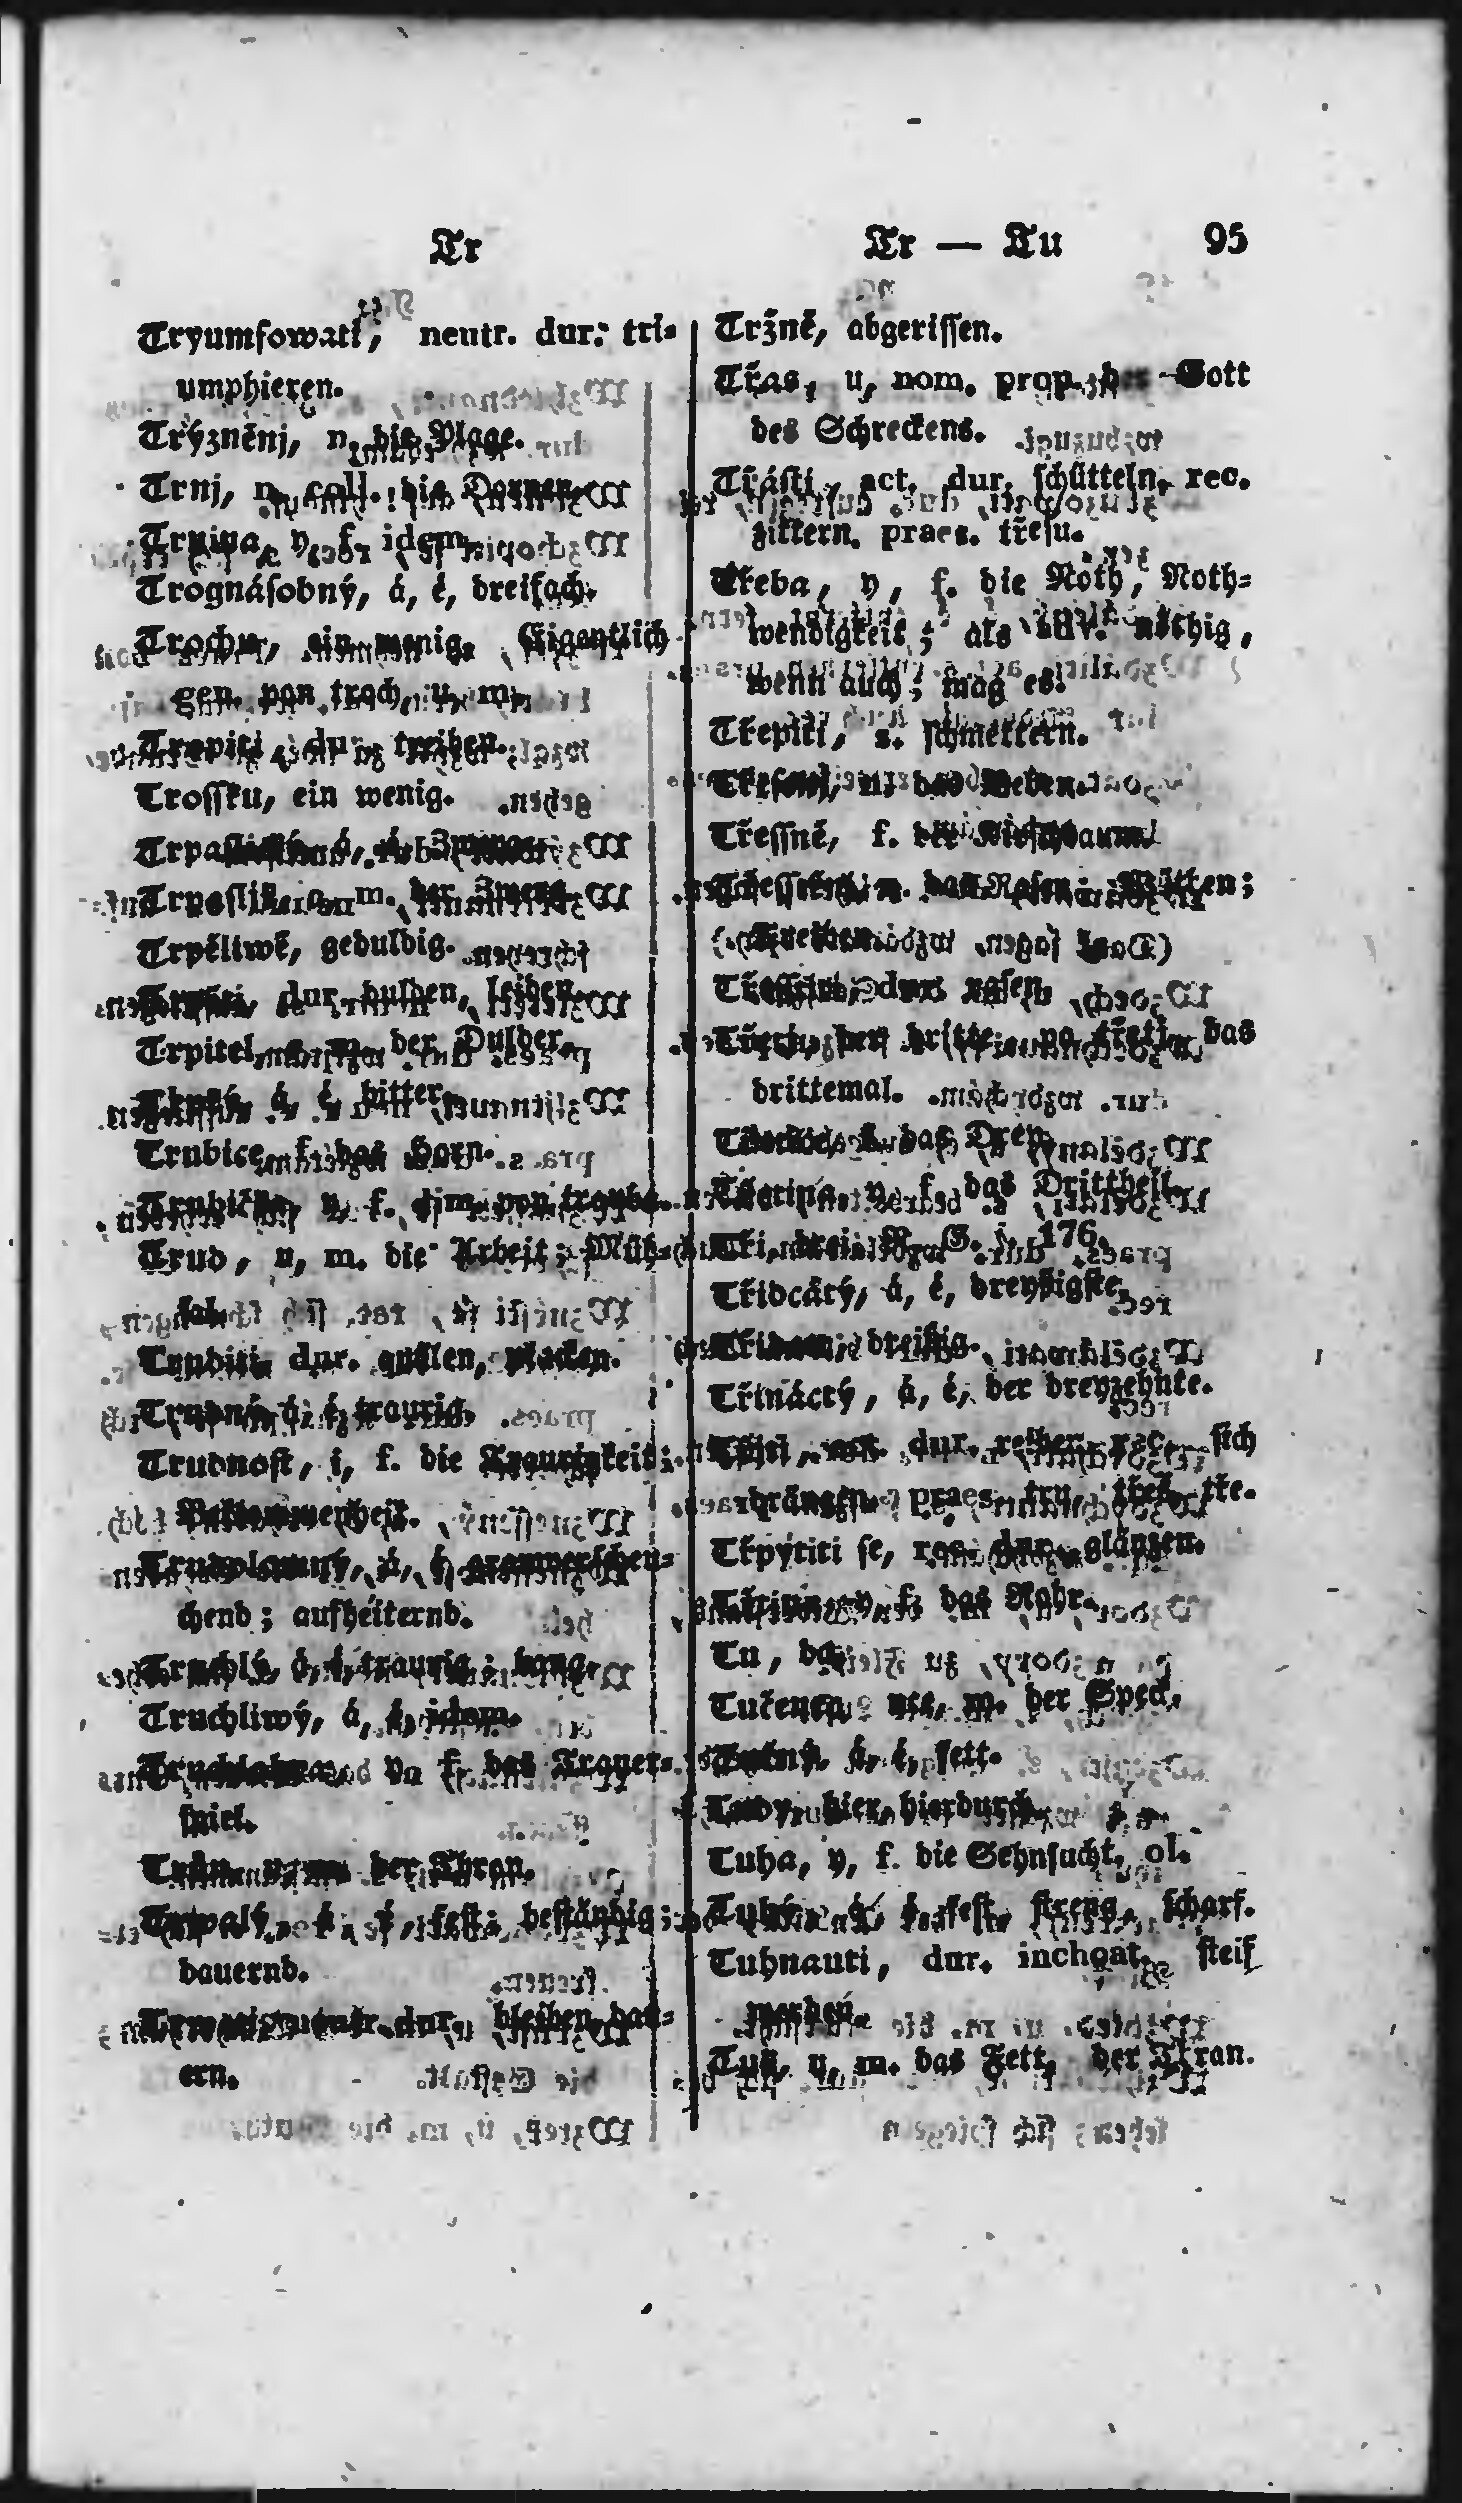 Tr
Tryumfowati, neutr. dur. tri-
umphieren.
Trýzněnj, n. die Plage.
Trnj, n. coll. die Dornen.
Trnina, y, f. idem.
Trognásobný, á, é, dreifach.
Trochu, ein wenig. Eigentlich
gen. von troch, u, m.
Tropiti, dur. treiben.
Trossku, ein wenig.
á, é,
m. der Zwerg.
Trpěliwě, geduldig.
dur. dulden, leiden.
Trpitel, e, m. der Dulder.
á, é, bitter.
Trubice, f. das Horn.
Trubička, y, f. dim. von trauba.
Trud, u, m. die Arbeit; Müh-
sal.
Truditi, dur. quälen, placken.
Trudný, á, é, traurig.
Trudnost, i, f. die Traurigkeit;
Beklommenheit.
á, é,
chend; aufheiternd.
Truchlý, á, é, traurig; bang.
Truchliwý, á, é, idem.
y, f. das Trauer-
spiel.
Trůn, u, m. der Thron.
Trwalý, á, é, fest; beständig;
dauernd.
neutr. dur. bleiben, dau-
ern.
Tr — Tu 95
Tržně, abgerissen.
Třas, u, nom. prop. der Gott
des Schreckens.
Třásti, act. dur. schütteln, rec.
zittern. praes. třesu.
Třeba, y, f. die Noth, Noth-
wendigkeit; als adv. nöthig,
wenn auch; mag es.
Třepiti, s. schmettern.
n. das Beben.
Třessně, f. der Kirschbaum.
n. das Rasen; Wüten;
dur. rasen.
Třetj, der dritte. po třetj, das
drittemal.
f. das Drey.
Třetina, y, f. das Drittheil.
Tři, drei. R. G. 176.
Třidcátý, á, é, dreyßigste.
dreißig.
Třináctý, á, é, der dreyzehnte.
Třjti, act. dur. reiben, rec. sich
drängen. praes. tru, třeš, tře.
Třpytiti se, rec. dur. glänzen.
Třtina, y, f. das Rohr.
Tu, da.
m. der Speck.
Tučný, á, é, fett.
Tudy, hier, hierdurch.
Tuha, y, f. die Sehnsucht. ol.
Tuhý, á, é, fest, streng, scharf.
Tuhnauti, dur. inchoat. steif
werden.
Tuk, u, m. das Fett, der Thran.